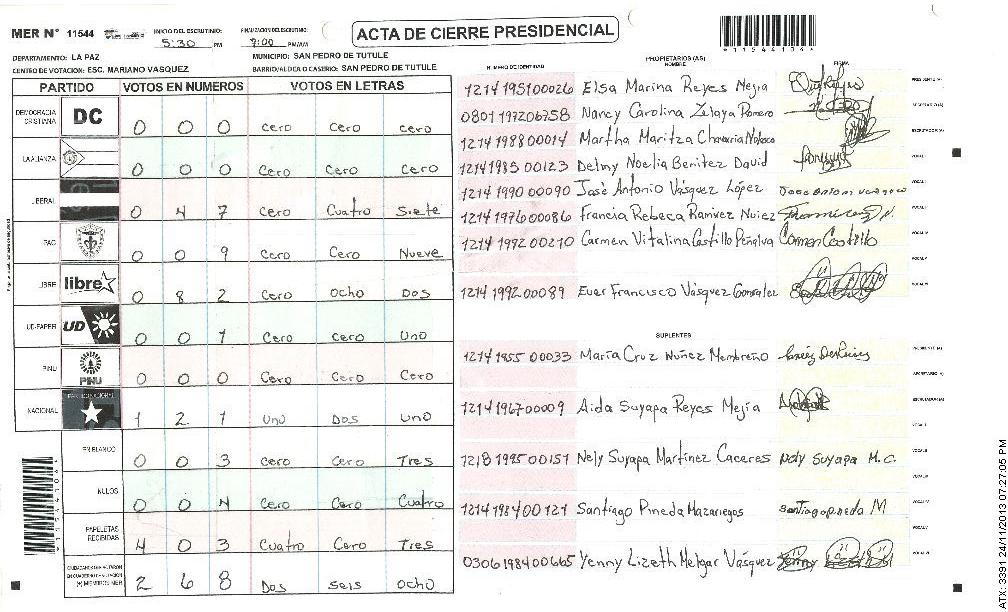 MER N° 11544
INICIO DEL ESCRUTINIO:
5:30 PM
FINALIZACION DEL ESCRUTINIO:
7:00 PM/AM
ACTA DE CIERRE PRESIDENCIAL
DEPARTAMENTO: LA PAZ
MUNICIPIO: SAN PEDRO DE TUTULE
CENTRO DE VOTACION: ESC. MARIANO VASQUEZ
BARRIO/ALDEA O CASERIO: SAN PEDRO DE TUTULE
PARTIDO VOTOS EN NUMEROS VOTOS EN LETRAS
DEMOCRACIA CRISTIANA DC 0 0 0 cero cero cero
LA ALIANZA 0 0 0 Cero Cero Cero
LIBERAL 0 4 7 Cero Cuatro Siete
PAC 0 0 9 Cero Cero Nueve
LIBRE libre 0 8 2 Cero Ocho Dos
UD-FAPER UD 0 0 1 Cero Cero Uno
PINU PINU 0 0 0 Cero Cero Cero
NACIONAL 1 2 1 Uno Dos Uno
EN BLANCO 0 0 3 Cero Cero Tres
NULOS 0 0 4 Cero Cero Cuatro
PAPELETAS RECIBIDAS 4 0 3 Cuatro Cero Tres
2 6 8 Dos seis ocho
NUMERO DE IDENTIDAD
PROPIETARIOS (AS)
NOMBRE
FIRMA
1214195100026 Elsa Marina Reyes Mejia
0801197206758 Nancy Carolina Zelaya Romero
1214198800014 Martha Maritza
1214198500123 Delmy Noelia Benitez David
1214199000090 José Antonio Vásquez López
1214197600086 Francia Rebeca Ramirez Nuñez
1214199200210 Carmen Vitalina Castillo Peñalva Carmen Castillo
1214199200089 Ever Francisco Vásquez Gonzalez
SUPLENTES
1214195500033 María Cruz Nuñez Membreño
1214196700009 Aida Suyapa Reyes Mejía
1218199500151 Nely Suyapa Martinez Caceres Nely Suyapa M.C.
1214198400121 Santiago Pineda Mazariegos Santiago pineda M
0306198400665 Yenny Lizeth Melgar Vásquez Yenny
ATX: 3391 24/11/2013 07:27:05 PM